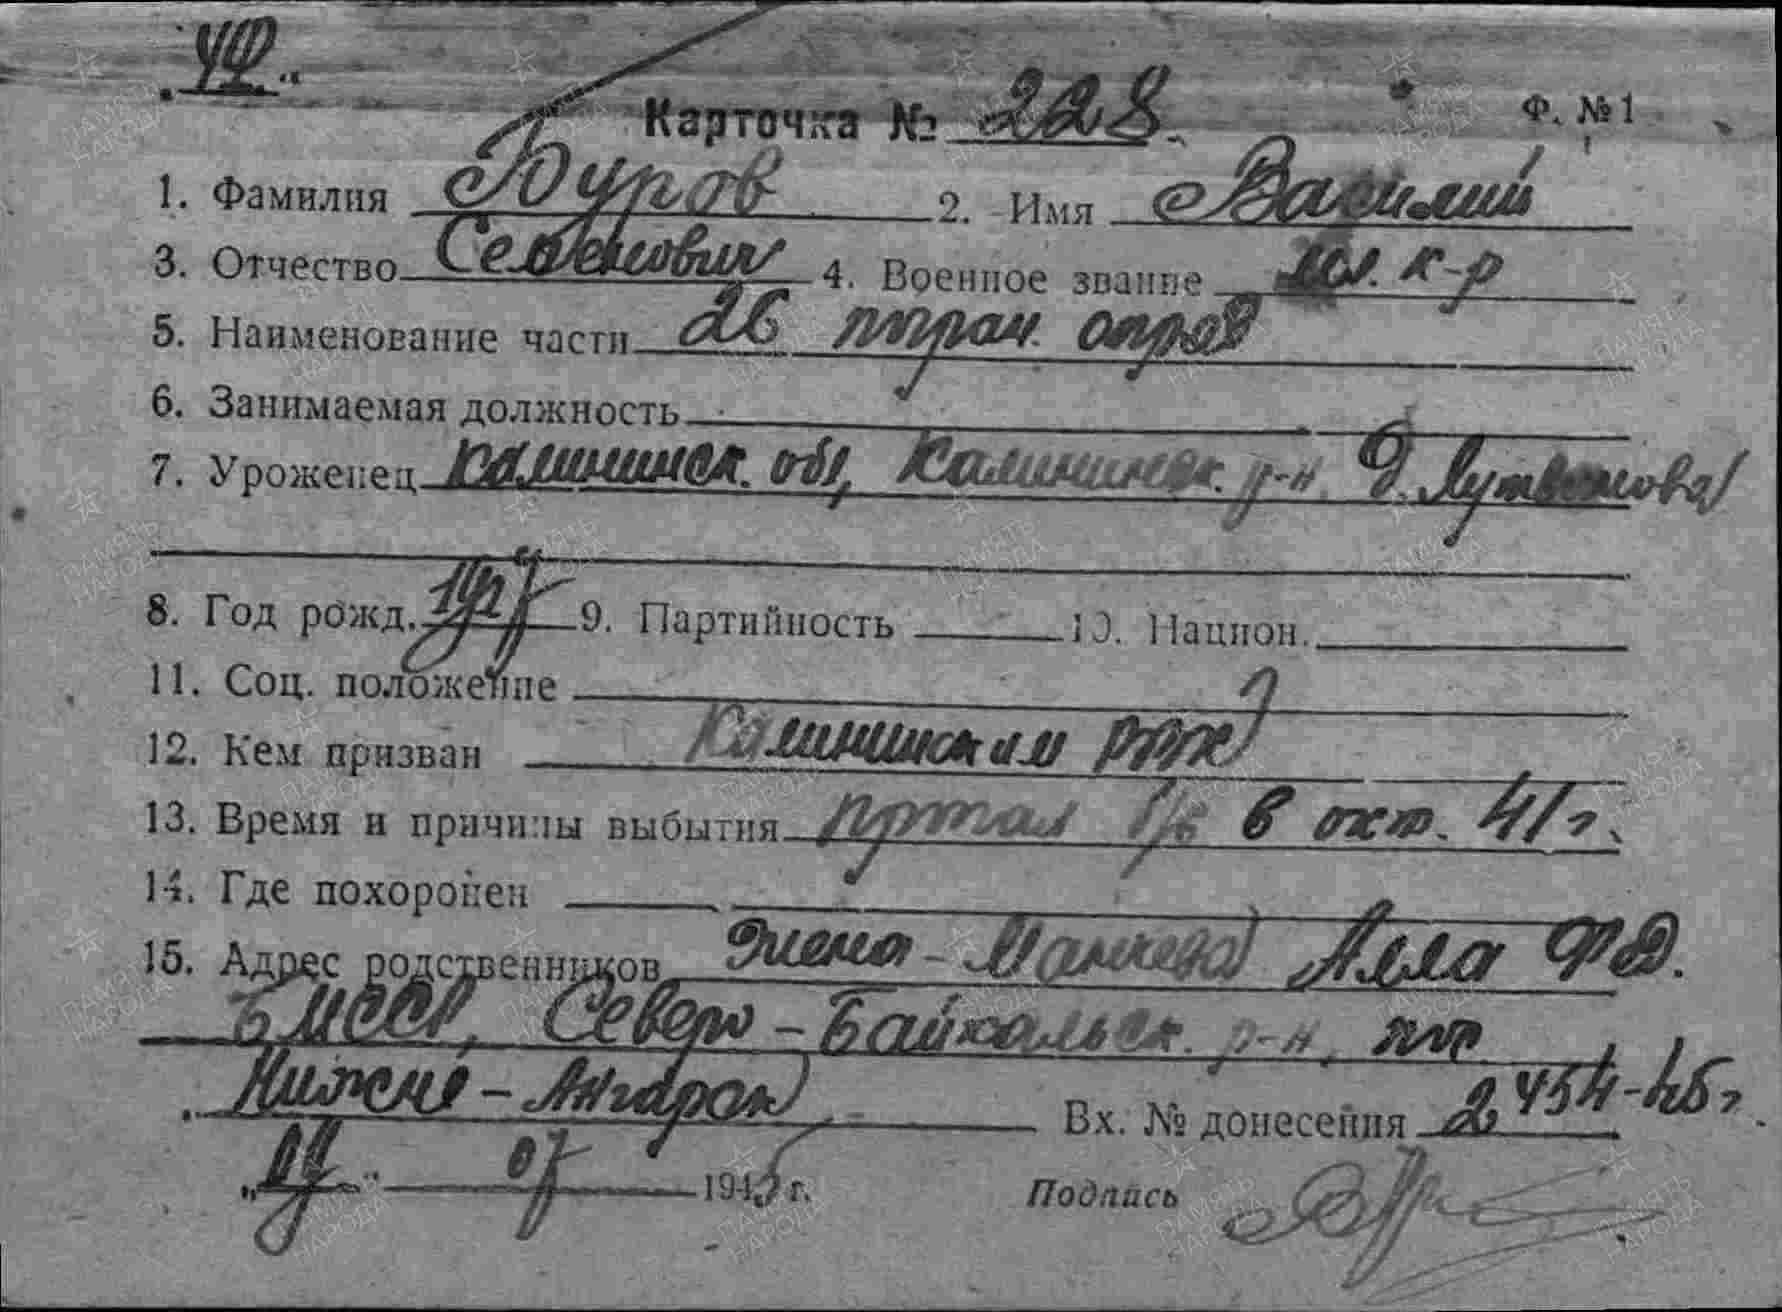 Карточка № 228 Ф. №1
1. Фамилия Буров 2. Имя Василий
3. Отчество Семенович 4. Военное звание мл. к-р
5. Наименование части 26 погран. отряд
6. Занимаемая должность
7. Уроженец Калининск. обл, Калининск. р-н, д.
8. Год рожд. 9. Партийность 10. Национ.
11. Соц. положение
12. Кем призван Калининским РВК
13. Время и причины выбытия пропал б/в в окт. 41 г.
14. Где похоронен
15. Адрес родственников Жена - Алла Ф.
БМССР, Северо-Байкальск. р-н, пос
Нижне-Ангарск Вх. № донесения 2454-45г
07 1945 г. Подпись
ПАМЯТЬ НАРОДА